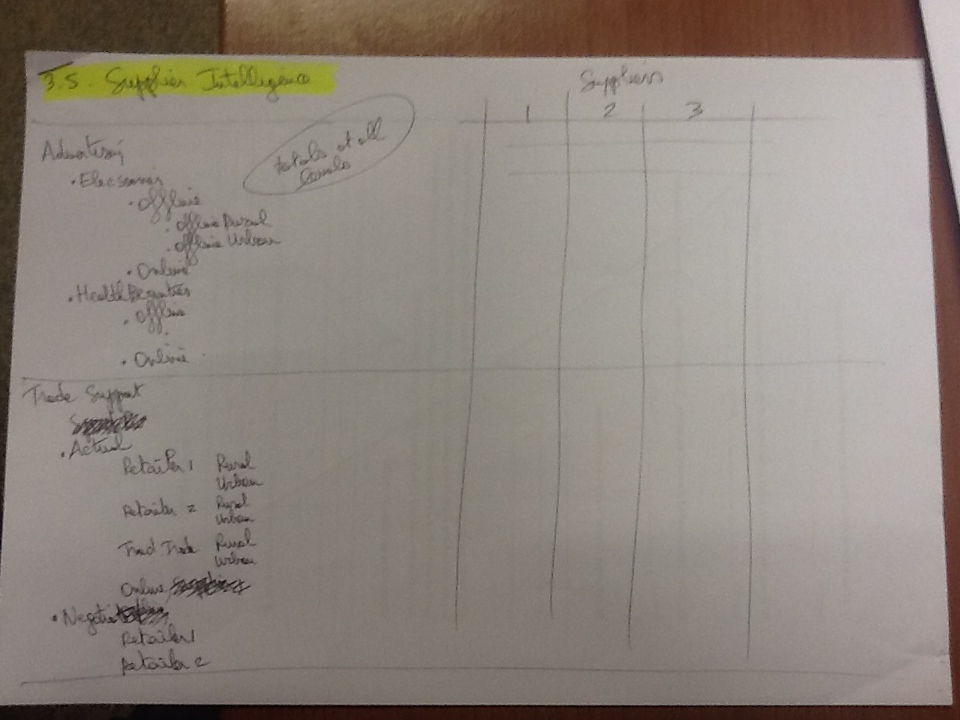 3.5 Supplier Intelligence
Suppliers
1 2 3
totals at all
levels
Advertising
• Electronics
• Offline
• Offline Rural
• Offline Urban
• Online
• Health
• Offline
• Online
Trade Support
• Actual
Retailer 1 Rural
Urban
Retailer 2 Rural
Urban
Trad Trade Rural
Urban
Online
Retailer 1
Retailer 2